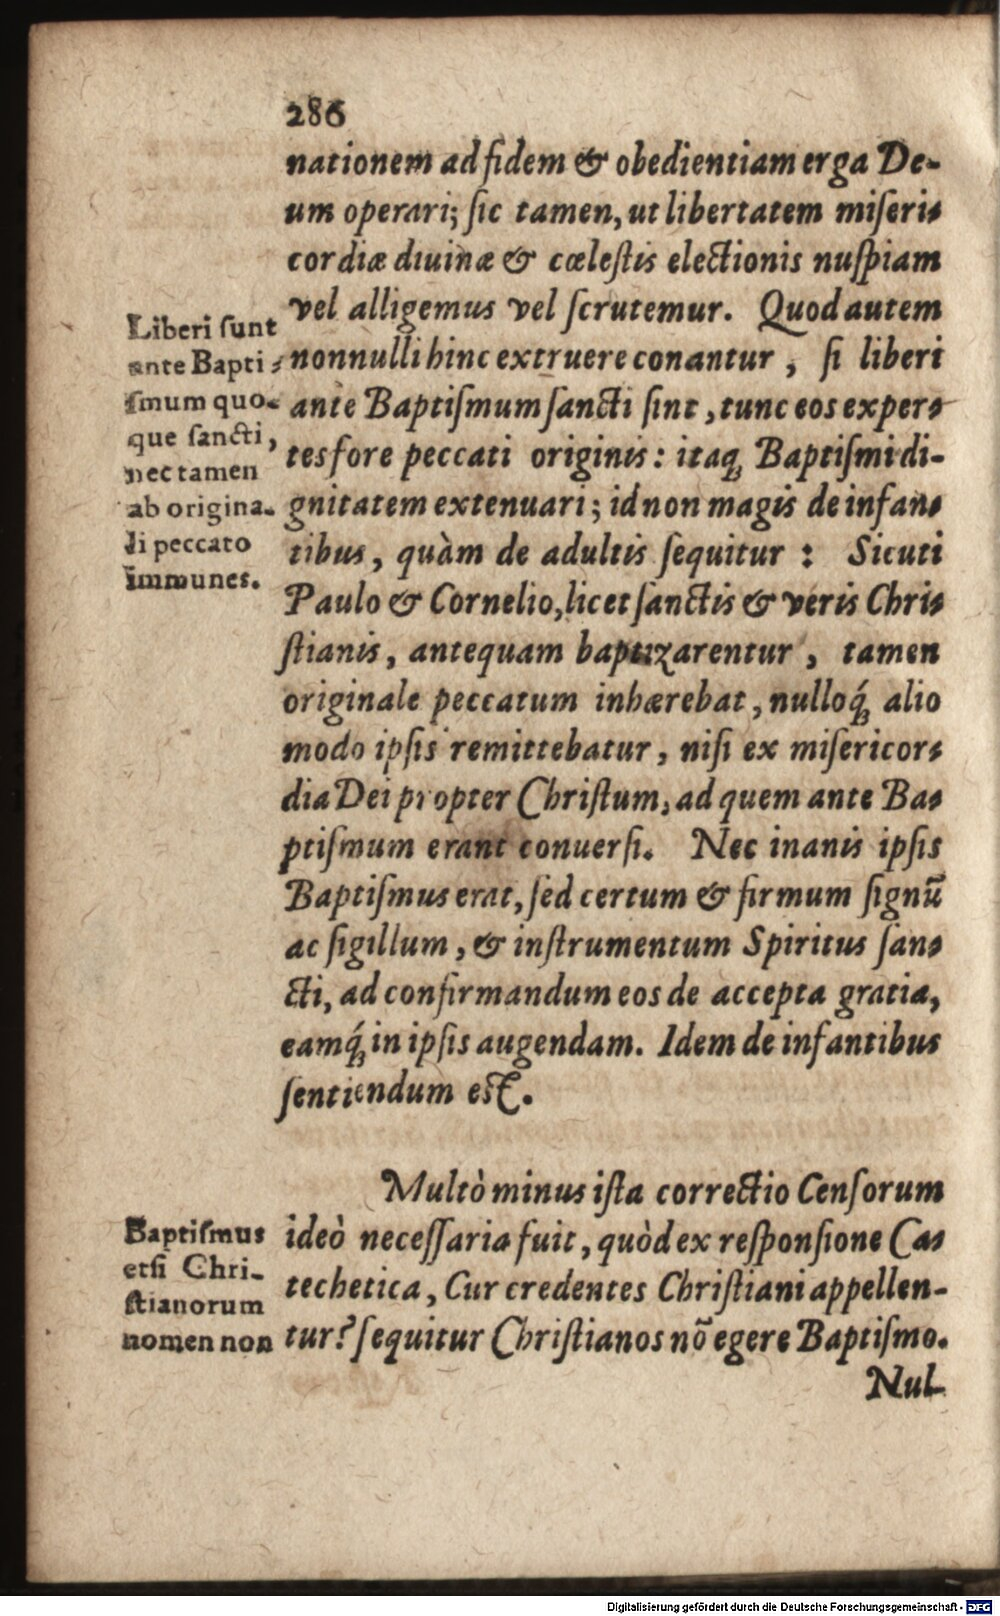 286
nationem ad fidem & obedientiam erga De-
um operari; ſic tamen, ut libertatem miſeri-
cordiæ diuinæ & cœleſtis electionis nuſpiam
vel alligemus vel ſcrutemur. Quod autem
nonnulli hinc extruere conantur, ſi liberi
ante Baptiſmum ſancti ſint, tunc eos exper-
tes fore peccati originis: itaq; Baptiſmi di-
gnitatem extenuari; id non magis de infan-
tibus, quàm de adultis ſequitur: Sicuti
Paulo & Cornelio, licet ſanctis & veris Chri-
ſtianis, antequam baptizarentur, tamen
originale peccatum inhærebat, nulloq́; alio
modo ipſis remittebatur, niſi ex miſericor-
dia Dei propter Chriſtum, ad quem ante Ba-
ptiſmum erant conuerſi. Nec inanis ipſis
Baptiſmus erat, ſed certum & firmum ſignū
ac ſigillum, & inſtrumentum Spiritus ſan-
cti, ad confirmandum eos de accepta gratia,
eamq́; in ipſis augendam. Idem de infantibus
ſentiendum eſt.
Liberi ſunt
ante Bapti-
ſmum quo-
que ſancti,
nec tamen
ab origina-
li peccato
immunes.
Multò minus iſta correctio Cenſorum
ideò neceſſaria fuit, quòd ex reſponſione Ca-
techetica, Cur credentes Chriſtiani appellen-
tur? ſequitur Chriſtianos nō egere Baptiſmo.
Baptiſmus
etſi Chri-
ſtianorum
nomen non
Nul-
Digitalisierung gefördert durch die Deutsche Forschungsgemeinschaft - DFG